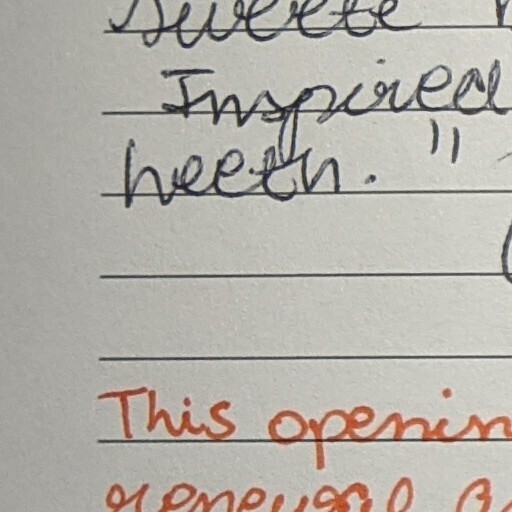 sweete
Inspired
heeth. "
This openin
renewal a